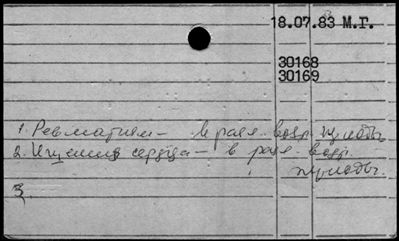 18.07.83 М.Г.
30168
30169
1. Ревматизм - в разл. возр. периоды
2. сердца - в разл. возр.
периоды.
3.